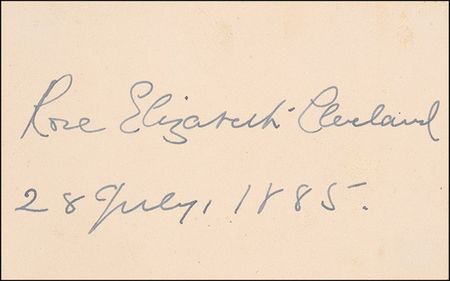 Rose Elizabeth Cleveland
28 July, 1885.